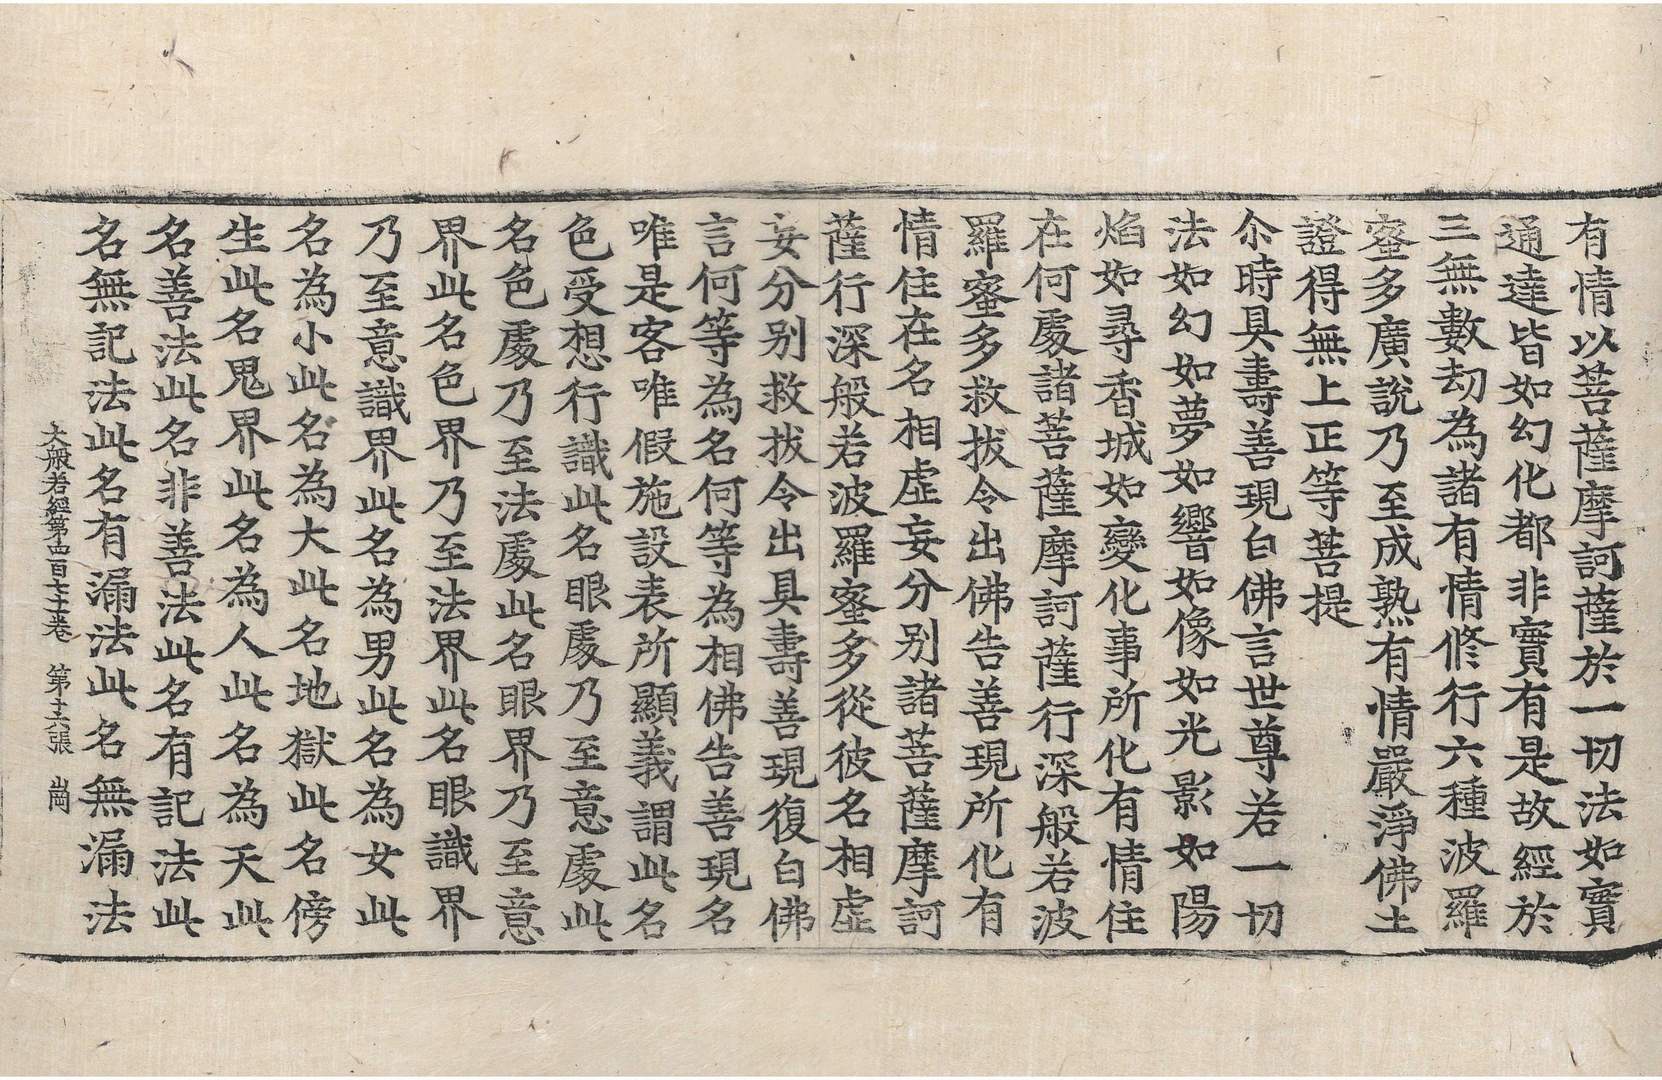 有情以菩薩摩訶薩於一切法如實
通達皆如幻化都非實有是故經於
三無數劫為諸有情修行六種波羅
蜜多廣說乃至成熟有情嚴淨佛土
證得無上正等菩提
尒時具壽善現白佛言世尊若一切
法如幻如夢如響如像如光影如陽
焰如尋香城如變化事所化有情住
在何處諸菩薩摩訶薩行深般若波
羅蜜多救拔令出佛告善現所化有
情住在名相虛妄分別諸菩薩摩訶
薩行深般若波羅蜜多從彼名相虛
妄分別救拔令出具壽善現復白佛
言何等為名何等為相佛告善現名
唯是客唯假施設表所顯義謂此名
色受想行識此名眼處乃至意處此
名色處乃至法處此名眼界乃至意
界此名色界乃至法界此名眼識界
乃至意識界此名為男此名為女此
名為小此名為大此名地獄此名傍
生此名鬼界此名為人此名為天此
名善法此名非善法此名有記法此
名無記法此名有漏法此名無漏法
大般若經第四百七十二卷 第十三張 崗